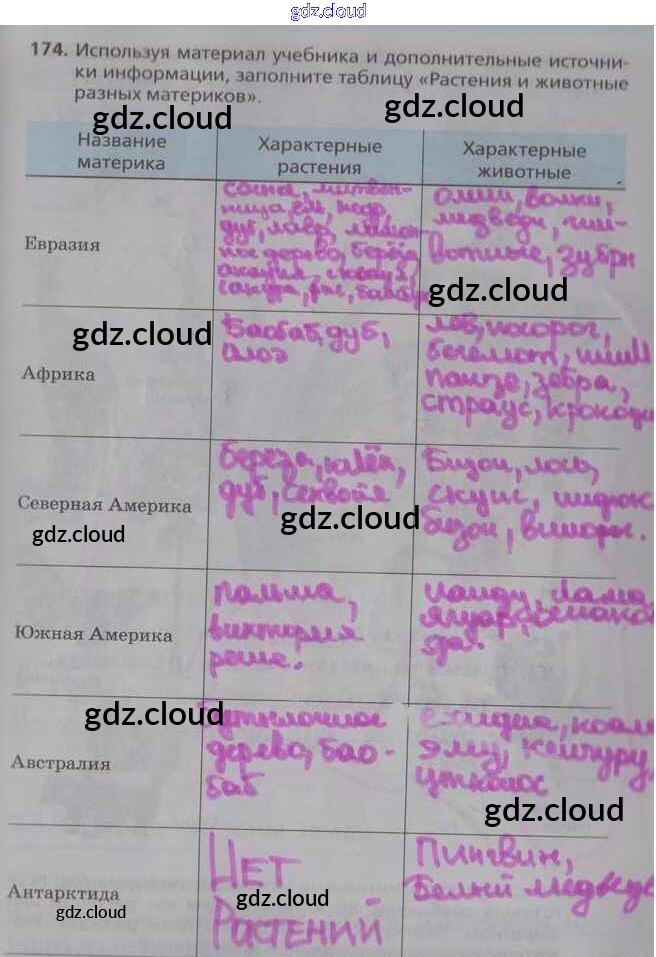 gdz.cloud
174. Используя материал учебника и дополнительные источни-
ки информации, заполните таблицу «Растения и животные
разных материков».
gdz.cloud
gdz.cloud
Название
материка
Характерные
растения
Характерные
животные
Евразия
сосна,
пица, ель, кедр,
дуб, лавр, лимон-
ное дерево, берёза,
акация,
сакура, рис,
олени, волки,
медведи,
вотные, зубры
gdz.cloud
gdz.cloud
Африка
Баобаб, дуб,
алоэ
лев, носорог,
бегемот,
зебра,
страус, крокоди
Северная Америка
gdz.cloud
береза, клён,
дуб, секвойя
gdz.cloud
Бизон, лось,
скунс,
бизон,
Южная Америка
пальма,
виктория
нанду, лама
gdz.cloud
Австралия
Бутылочное
дерево, бао-
баб
ехидна, коала
эму, кенгуру,
утконос
gdz.cloud
Антарктида
gdz.cloud
НЕТ
РАСТЕНИЙ
gdz.cloud
Пингвин,
Белый медведь
gdz.cloud